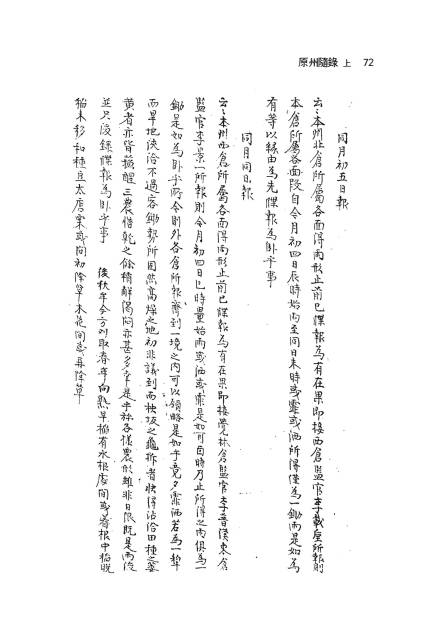 原州隨錄 上 72
同月初五日報
云云本州北倉所屬各面得雨形止前已牒報爲有在果卽接西倉監官李載厚所報則
本倉所屬各面段自今月初四日辰時始雨至同日未時或霏或洒所得僅爲一鋤而是如爲
有等以緣由爲先牒報爲臥乎事
同月同日報
云云本州西倉所屬各面得雨形止前已牒報爲有在果卽接覺林倉監官李喜漢東倉
監官李景一所報則今月初四日巳時量始雨或洒或霏是如可酉時乃止所得之內俱爲一
鋤是如爲臥乎所今則外各倉所報齊到一境之內可以領略是如乎竟夕霏洒若爲一犂
而旱地浹洽不過容鋤勢所固然高燥之地初非議到而秧坂之龜拆者快得沾洽田種之萎
黃者亦皆蘇醒三農惜乾之餘
並只段緣牒報爲臥乎事 後秋年分方刈取春牟向熟早稻有水根處間或着根中稻晩
稻未移和種豆太唐粟或間初除草木花間或再除草